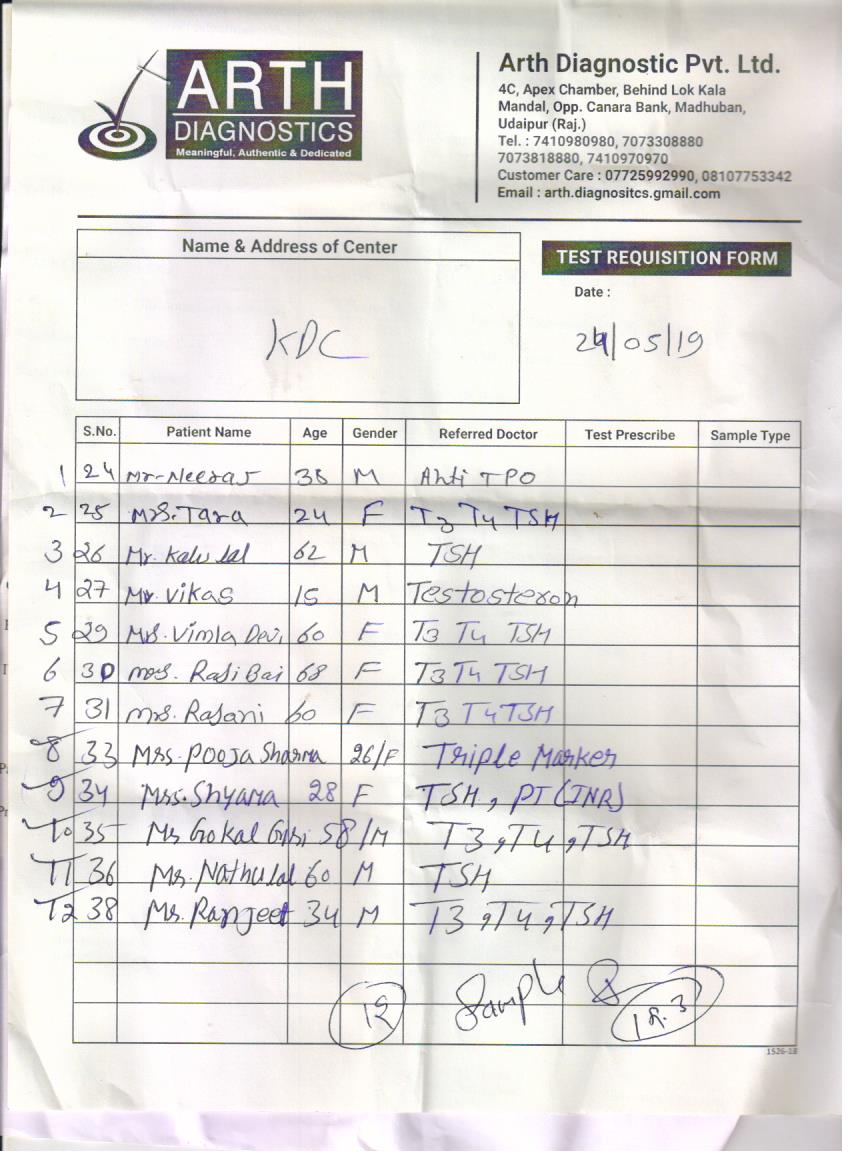 ARTH
DIAGNOSTICS
Meaningful, Authentic & Dedicated
Arth Diagnostic Pvt. Ltd.
4C, Apex Chamber, Behind Lok Kala
Mandal, Opp. Canara Bank, Madhuban,
Udaipur (Raj.)
Tel. : 7410980980, 7073308880
7073818880, 7410970970
Customer Care : 07725992990, 08107753342
Email : arth.diagnositcs.gmail.com
Name & Address of Center
KDC
TEST REQUISITION FORM
Date :
24/05/19
S.No. Patient Name Age Gender Referred Doctor Test Prescribe Sample Type
1 24 Mr. Neeraj 38 M Anti TPO
2 25 Mrs. Tara 24 F T3 T4 TSH
3 26 Mr. Kalu lal 62 M TSH
4 27 Mr. Vikas 15 M Testosteron
5 29 Mrs. Vimla Devi 60 F T3 T4 TSH
6 30 Mrs. Raji Bai 68 F T3 T4 TSH
7 31 Mrs. Rajani 60 F T3 T4 TSH
8 33 Mrs. Pooja Sharma 26/F Triple Marker
9 34 Mrs. Shyama 28 F TSH, PT (INR)
10 35 Mr. Gokal Giri 58/M T3, T4, TSH
11 36 Mr. Nathulal 60 M TSH
12 38 Mr. Ranjeet 34 M T3, T4, TSH
12 Sample
1526-18